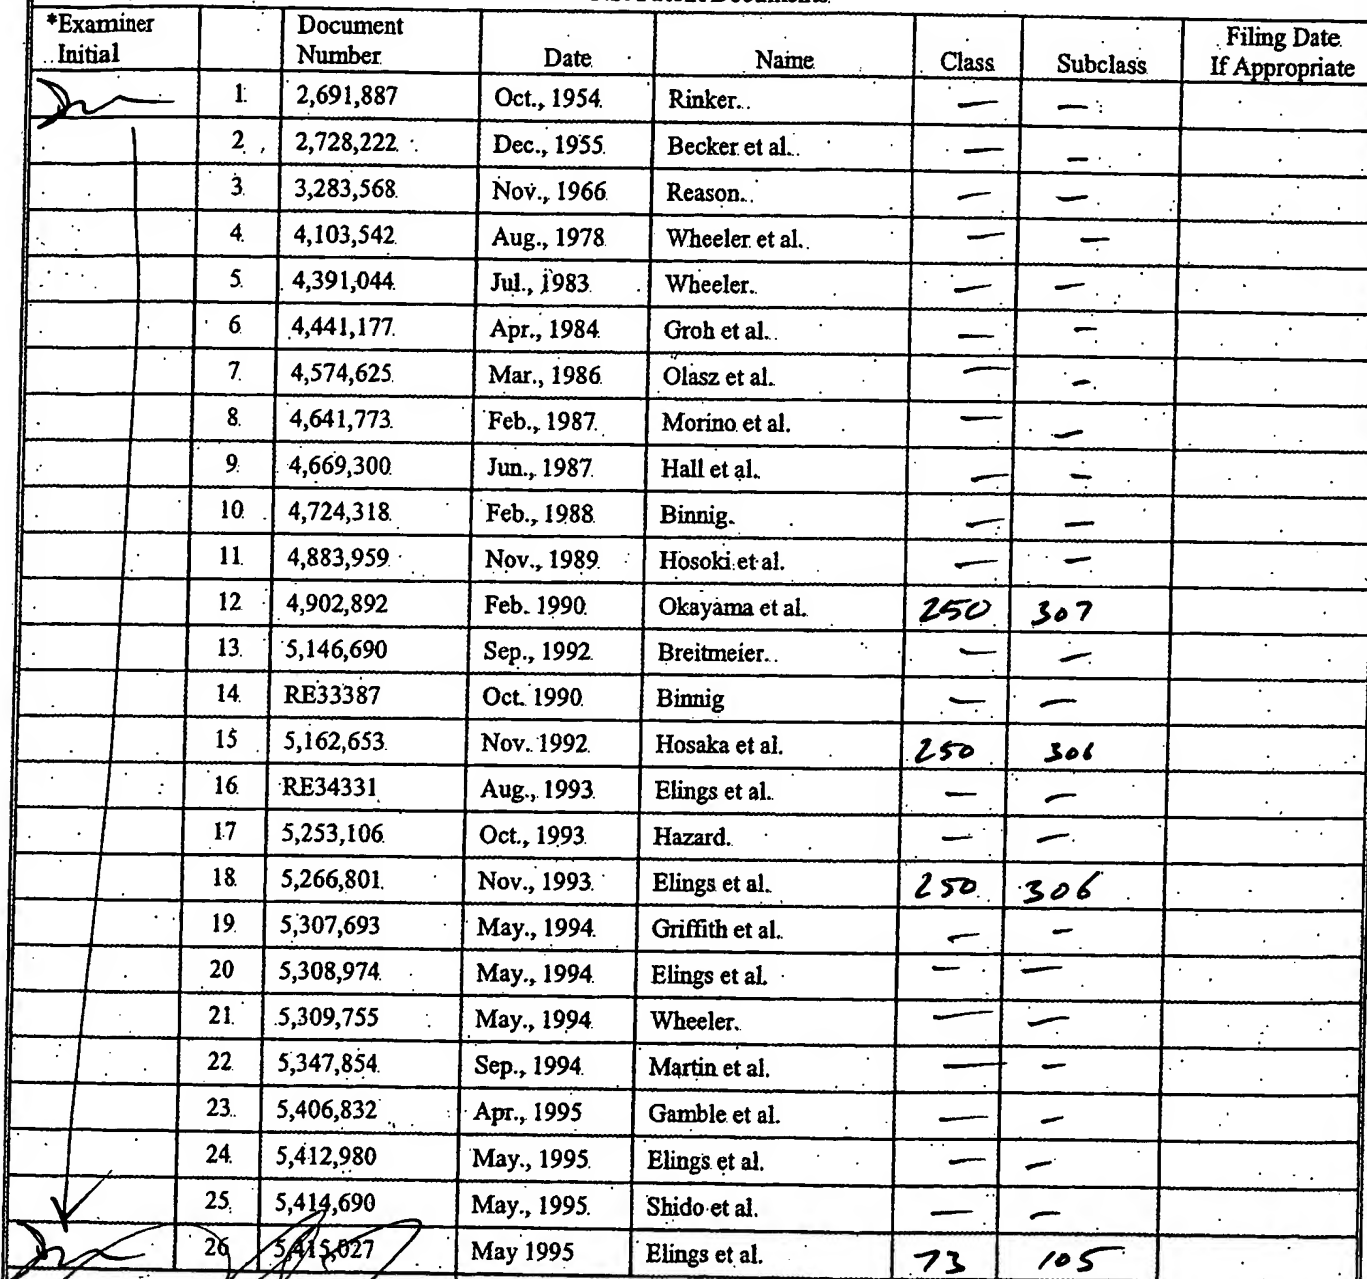 *Examiner Initial Document Number Date Name Class Subclass Filing Date If Appropriate
1 2,691,887 Oct., 1954 Rinker. — —
2 2,728,222 Dec., 1955 Becker et al. — —
3 3,283,568 Nov., 1966 Reason. — —
4 4,103,542 Aug., 1978 Wheeler et al. — —
5 4,391,044 Jul., 1983 Wheeler. — —
6 4,441,177 Apr., 1984 Groh et al. — —
7 4,574,625 Mar., 1986 Olasz et al. — —
8 4,641,773 Feb., 1987 Morino et al. — —
9 4,669,300 Jun., 1987 Hall et al. — —
10 4,724,318 Feb., 1988 Binnig. — —
11 4,883,959 Nov., 1989 Hosoki et al. — —
12 4,902,892 Feb. 1990 Okayama et al. 250 307
13 5,146,690 Sep., 1992 Breitmeier. — —
14 RE33387 Oct. 1990 Binnig — —
15 5,162,653 Nov. 1992 Hosaka et al. 250 306
16 RE34331 Aug., 1993 Elings et al. — —
17 5,253,106 Oct., 1993 Hazard. — —
18 5,266,801 Nov., 1993 Elings et al. 250 306
19 5,307,693 May., 1994 Griffith et al. — —
20 5,308,974 May., 1994 Elings et al. — —
21 5,309,755 May., 1994 Wheeler. — —
22 5,347,854 Sep., 1994 Martin et al. — —
23 5,406,832 Apr., 1995 Gamble et al. — —
24 5,412,980 May., 1995 Elings et al. — —
25 5,414,690 May., 1995 Shido et al. — —
26 5,415,027 May 1995 Elings et al. 73 105